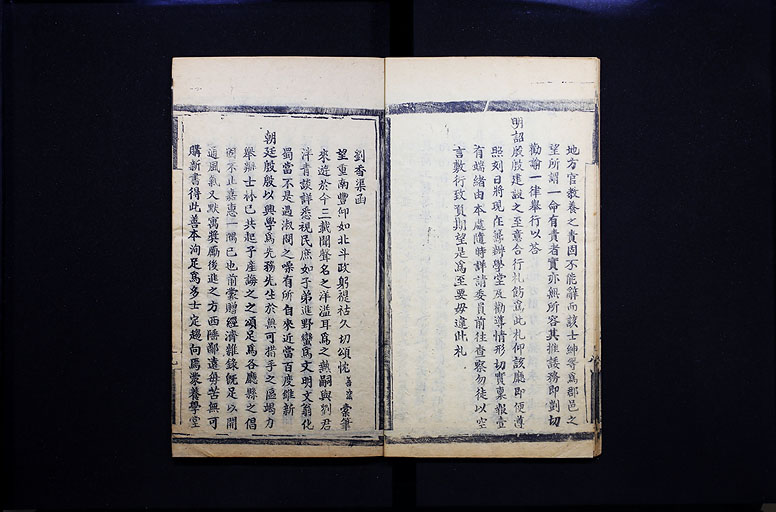 地方官教養之責固不能辭而該士紳等爲郡邑之
望所謂一命有責者實亦無所容其推諉務即剴切
勸諭一律舉行以答
明詔殷殷建設之至意合行札飭爲此札仰該廳即便遵
照刻日將現在籌辦學堂及勸導情形切實稟報壹
有端緒由本處隨時詳請委員前往查察勿徒以空
言敷衍致負期望是爲至要毋違此札
劉香渠函
望重南豐仰如北斗政躬禔祜久切頌忱
橐筆
來遊於今三載聞聲名之洋溢耳爲之熱嗣與劉君
泮青談詳悉視民庶如子弟進野蠻爲文明文翁化
蜀當不是過淑問之噪有所自來近當百度維新
朝廷殷殷以興學爲先務先生於無可措手之區竭力
舉辦士林已共起子產誨之之頌足爲各廳縣之倡
固不止嘉惠一隅已也前蒙贈經濟雜錄既足以開
通風氣又默寓獎勵後進之方西陲鄙遠每苦無可
購新書得此善本洵足爲多士定趨向焉蒙養學堂